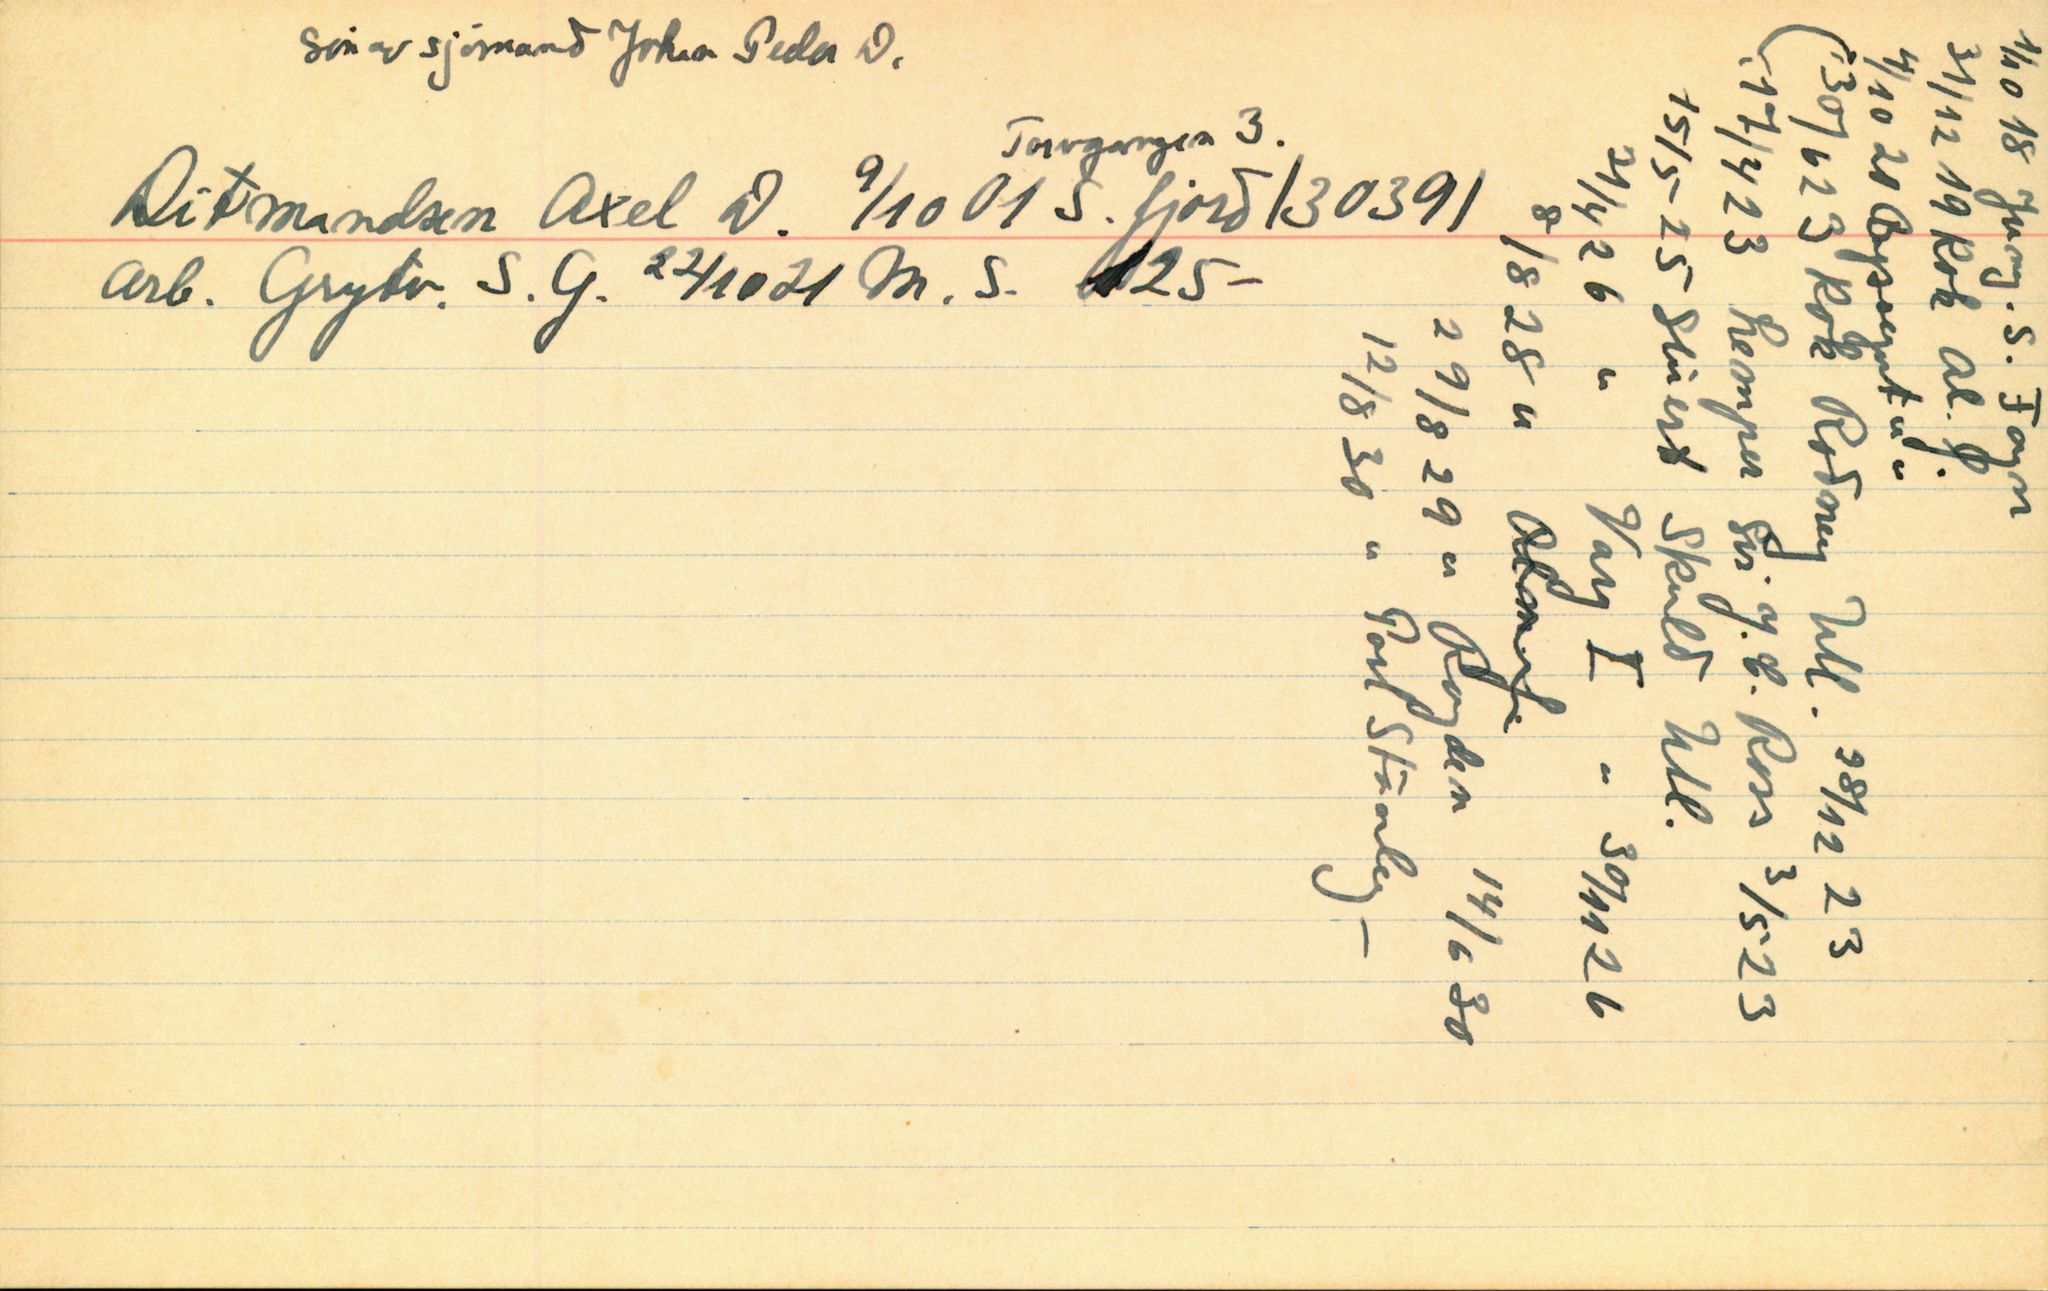 Søn av sjømand Johan Peder D.
Torvgangen 3.
Ditmandsen Axel D. 9/10 01 S. fjord /30391
arb. Grytv. S. G. 22/10 21 M. S. 125-
1/10 18 Jung. S. Foyn
31/12 19 Kok Al. f.
4/10 20 " "
(30/6 23 Kok Rodney Utl. 28/12 23
(17/4 23 Lemper Sir J. C. Ross 3/5 23
15/5-25 Stuert Skuld Utl.
21/4 26 " Varg I " 30/11 26
8/8 28 "
29/8 29 " Ragden 14/6 30
12/8 30 " Port Stanley -